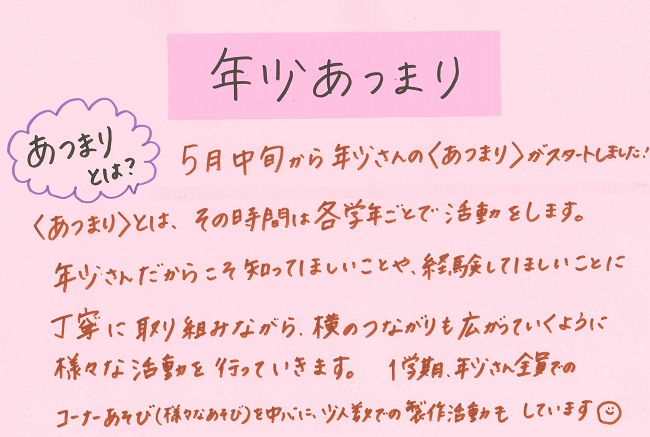 年少あつまり
あつまり
とは?
5月中旬から年少さんの〈あつまり〉がスタートしました!
〈あつまり〉とは、その時間は各学年ごとで活動をします。
年少さんだからこそ知ってほしいことや、経験してほしいことに
丁寧に取り組みながら、横のつながりも広がっていくように
様々な活動を行っていきます。 1学期、年少さん全員での
コーナーあそび(様々なあそび)を中心に、少人数での製作活動もしています